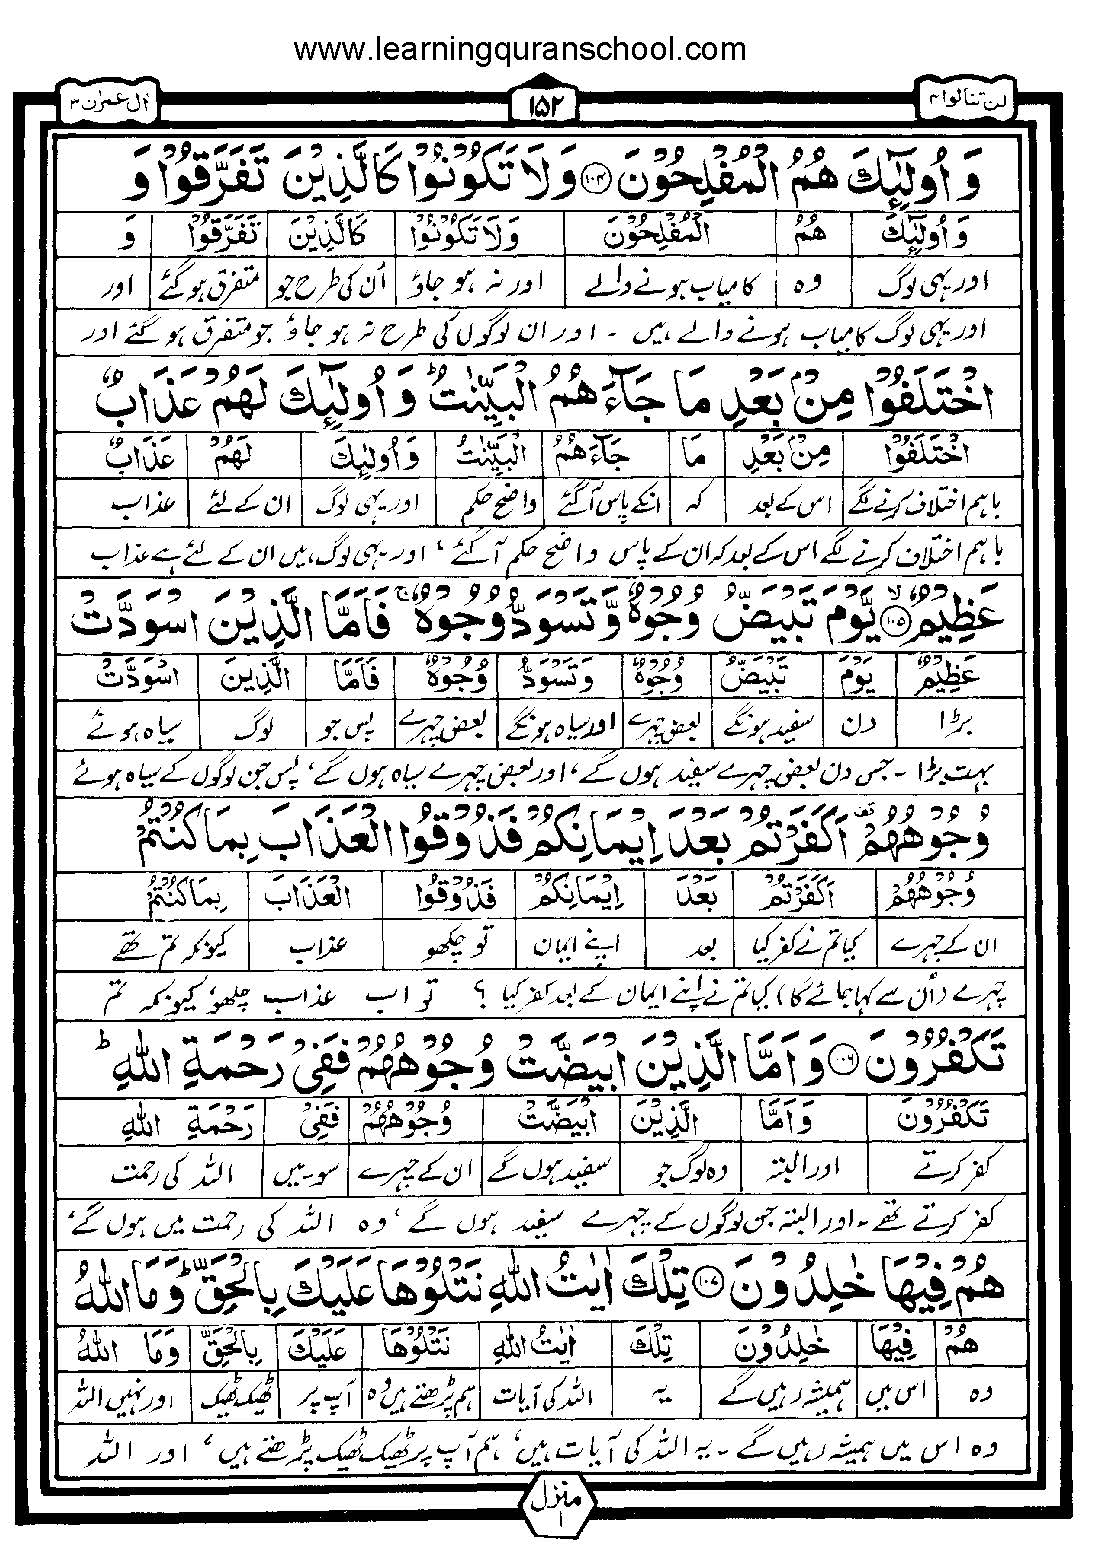 www.learningquranschool.com
لن تنالوا ۴ ۱۵۲ اٰل عمرٰن ۳
وَ اُولٰٓئِكَ هُمُ الْمُفْلِحُوْنَ ۱۰۴ وَلَا تَكُوْنُوْا كَالَّذِيْنَ تَفَرَّقُوْا وَ
وَ اُولٰٓئِكَ هُمُ الْمُفْلِحُوْنَ وَلَا تَكُوْنُوْا كَالَّذِيْنَ تَفَرَّقُوْا وَ
اور یہی لوگ وہ کامیاب ہونے والے اور نہ ہو جاؤ اُن کی طرح جو متفرق ہو گئے اور
اور یہی لوگ کامیاب ہونے والے ہیں ۔ اور ان لوگوں کی طرح نہ ہو جاؤ جو متفرق ہو گئے اور
اخْتَلَفُوْا مِنْۢ بَعْدِ مَا جَآءَهُمُ الْبَيِّنٰتُ ؕ وَ اُولٰٓئِكَ لَهُمْ عَذَابٌ
اخْتَلَفُوْا مِنْۢ بَعْدِ مَا جَآءَهُمُ الْبَيِّنٰتُ وَ اُولٰٓئِكَ لَهُمْ عَذَابٌ
باہم اختلاف کرنے لگے اس کے بعد کہ انکے پاس آگئے واضح حکم اور یہی لوگ ان کے لئے عذاب
باہم اختلاف کرنے لگے اس کے بعد کہ ان کے پاس واضح حکم آگئے ، اور یہی لوگ ہیں ان کے لئے ہے عذاب
عَظِيْمٌ ۱۰۵ۙ يَّوْمَ تَبْيَضُّ وُجُوْهٌ وَّتَسْوَدُّ وُجُوْهٌ ۚ فَاَمَّا الَّذِيْنَ اسْوَدَّتْ
عَظِيْمٌ يَوْمَ تَبْيَضُّ وُجُوْهٌ وَتَسْوَدُّ وُجُوْهٌ فَاَمَّا الَّذِيْنَ اسْوَدَّتْ
بڑا دن سفید ہونگے بعض چہرے اور سیاہ ہونگے بعض چہرے پس جو لوگ سیاہ ہوئے
بہت بڑا ۔ جس دن بعض چہرے سفید ہوں گے ، اور بعض چہرے سیاہ ہوں گے ، پس جن لوگوں کے سیاہ ہوئے
وُجُوْهُهُمْ ۫ اَكَفَرْتُمْ بَعْدَ اِيْمَانِكُمْ فَذُوْقُوا الْعَذَابَ بِمَا كُنْتُمْ
وُجُوْهُهُمْ اَكَفَرْتُمْ بَعْدَ اِيْمَانِكُمْ فَذُوْقُوا الْعَذَابَ بِمَا كُنْتُمْ
ان کے چہرے کیا تم نے کفر کیا بعد اپنے ایمان تو چکھو عذاب کیونکہ تم تھے
چہرے (اُن سے کہا جائے گا) کیا تم نے اپنے ایمان کے بعد کفر کیا ؟ تو اب عذاب چکھو، کیونکہ تم
تَكْفُرُوْنَ ۱۰۶ وَ اَمَّا الَّذِيْنَ ابْيَضَّتْ وُجُوْهُهُمْ فَفِيْ رَحْمَةِ اللّٰهِ ؕ
تَكْفُرُوْنَ وَ اَمَّا الَّذِيْنَ ابْيَضَّتْ وُجُوْهُهُمْ فَفِيْ رَحْمَةِ اللّٰهِ
کفر کرتے اور البتہ وہ لوگ جو سفید ہوں گے ان کے چہرے سو میں اللہ کی رحمت
کفر کرتے تھے ۔ اور البتہ جن لوگوں کے چہرے سفید ہوں گے ، وہ اللہ کی رحمت میں ہوں گے ،
هُمْ فِيْهَا خٰلِدُوْنَ ۱۰۷ تِلْكَ اٰيٰتُ اللّٰهِ نَتْلُوْهَا عَلَيْكَ بِالْحَقِّ ؕ وَمَا اللّٰهُ
هُمْ فِيْهَا خٰلِدُوْنَ تِلْكَ اٰيٰتُ اللّٰهِ نَتْلُوْهَا عَلَيْكَ بِالْحَقِّ وَمَا اللّٰهُ
وہ اس میں ہمیشہ رہیں گے یہ اللہ کی آیات ہم پڑھتے ہیں وہ آپ پر ٹھیک ٹھیک اور نہیں اللہ
وہ اس میں ہمیشہ رہیں گے ۔ یہ اللہ کی آیات ہیں ، ہم آپ پر ٹھیک ٹھیک پڑھتے ہیں ، اور اللہ
منزل ۱